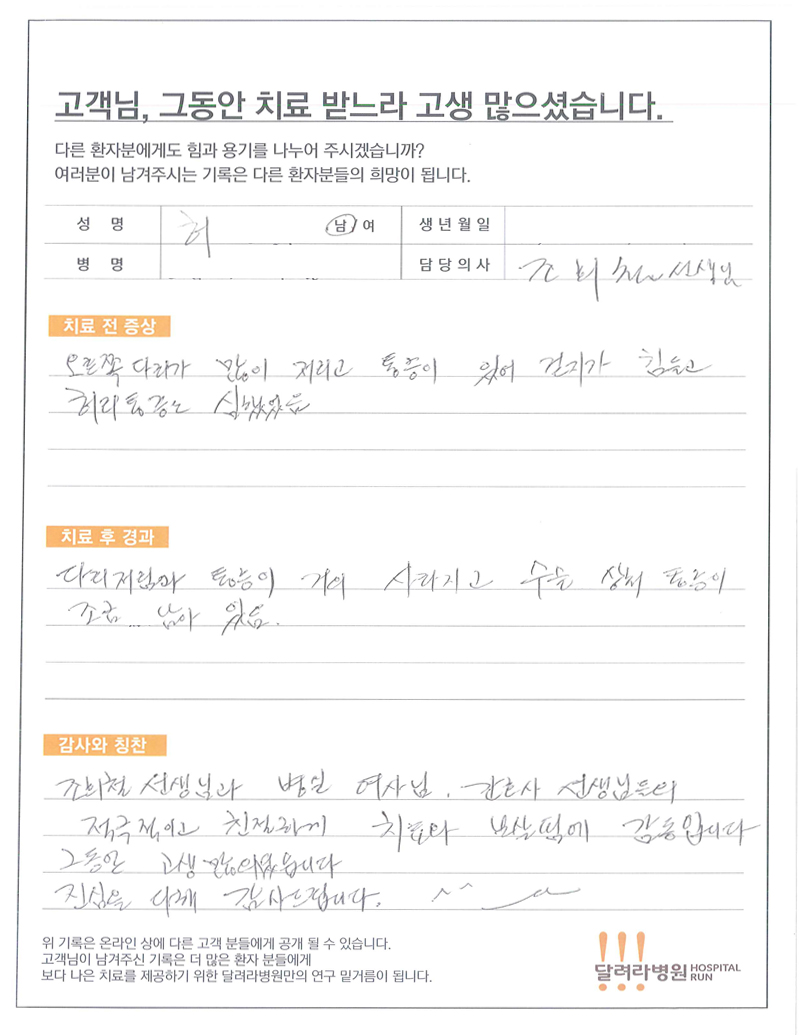 고객님, 그동안 치료 받느라 고생 많으셨습니다.
다른 환자분에게도 힘과 용기를 나누어 주시겠습니까?
여러분이 남겨주시는 기록은 다른 환자분들의 희망이 됩니다.
성 명 허 남 여 생년월일
병 명 담당의사 조희철 선생님
치료 전 증상
오른쪽 다리가 많이 저리고 통증이 있어 걷기가 힘들고
허리통증도 심했었음
치료 후 경과
다리저림과 통증이 거의 사라지고 수술 상처 통증이
조금... 남아 있음.
감사와 칭찬
조희철 선생님과 병실 여사님. 간호사 선생님들의
적극적이고 친절하게 치료와 보살핌에 감동입니다
그동안 고생 많으셨습니다
진심을 다해 감사드립니다. ^^
위 기록은 온라인 상에 다른 고객 분들에게 공개 될 수 있습니다.
고객님이 남겨주신 기록은 더 많은 환자 분들에게
보다 나은 치료를 제공하기 위한 달려라병원만의 연구 밑거름이 됩니다.
달려라병원 HOSPITAL RUN